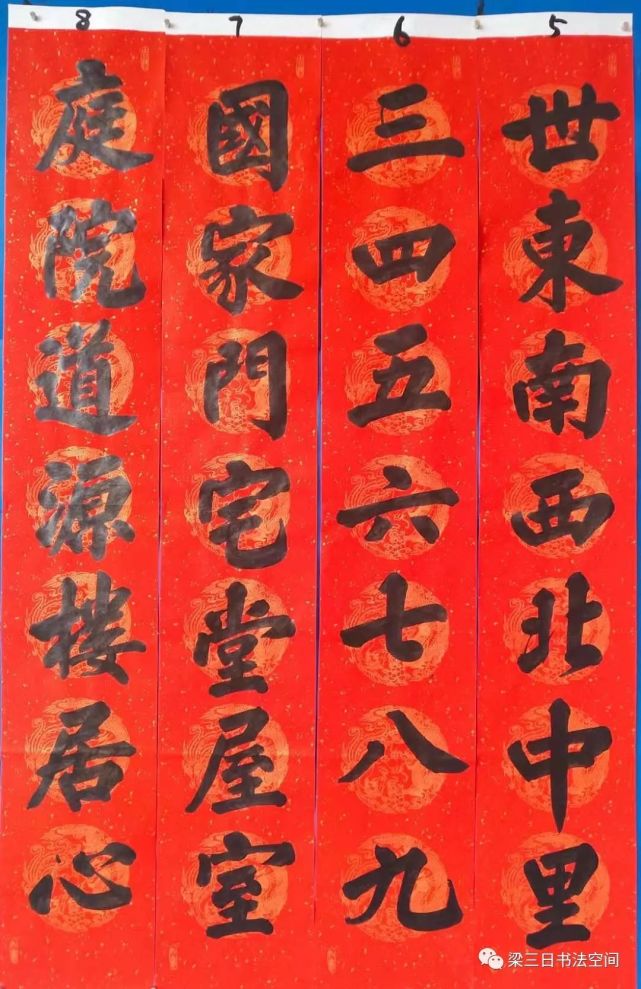 5
世東南西北中里
6
三四五六七八九
7
國家門宅堂屋室
8
庭院道源楼居心
梁三日书法空间